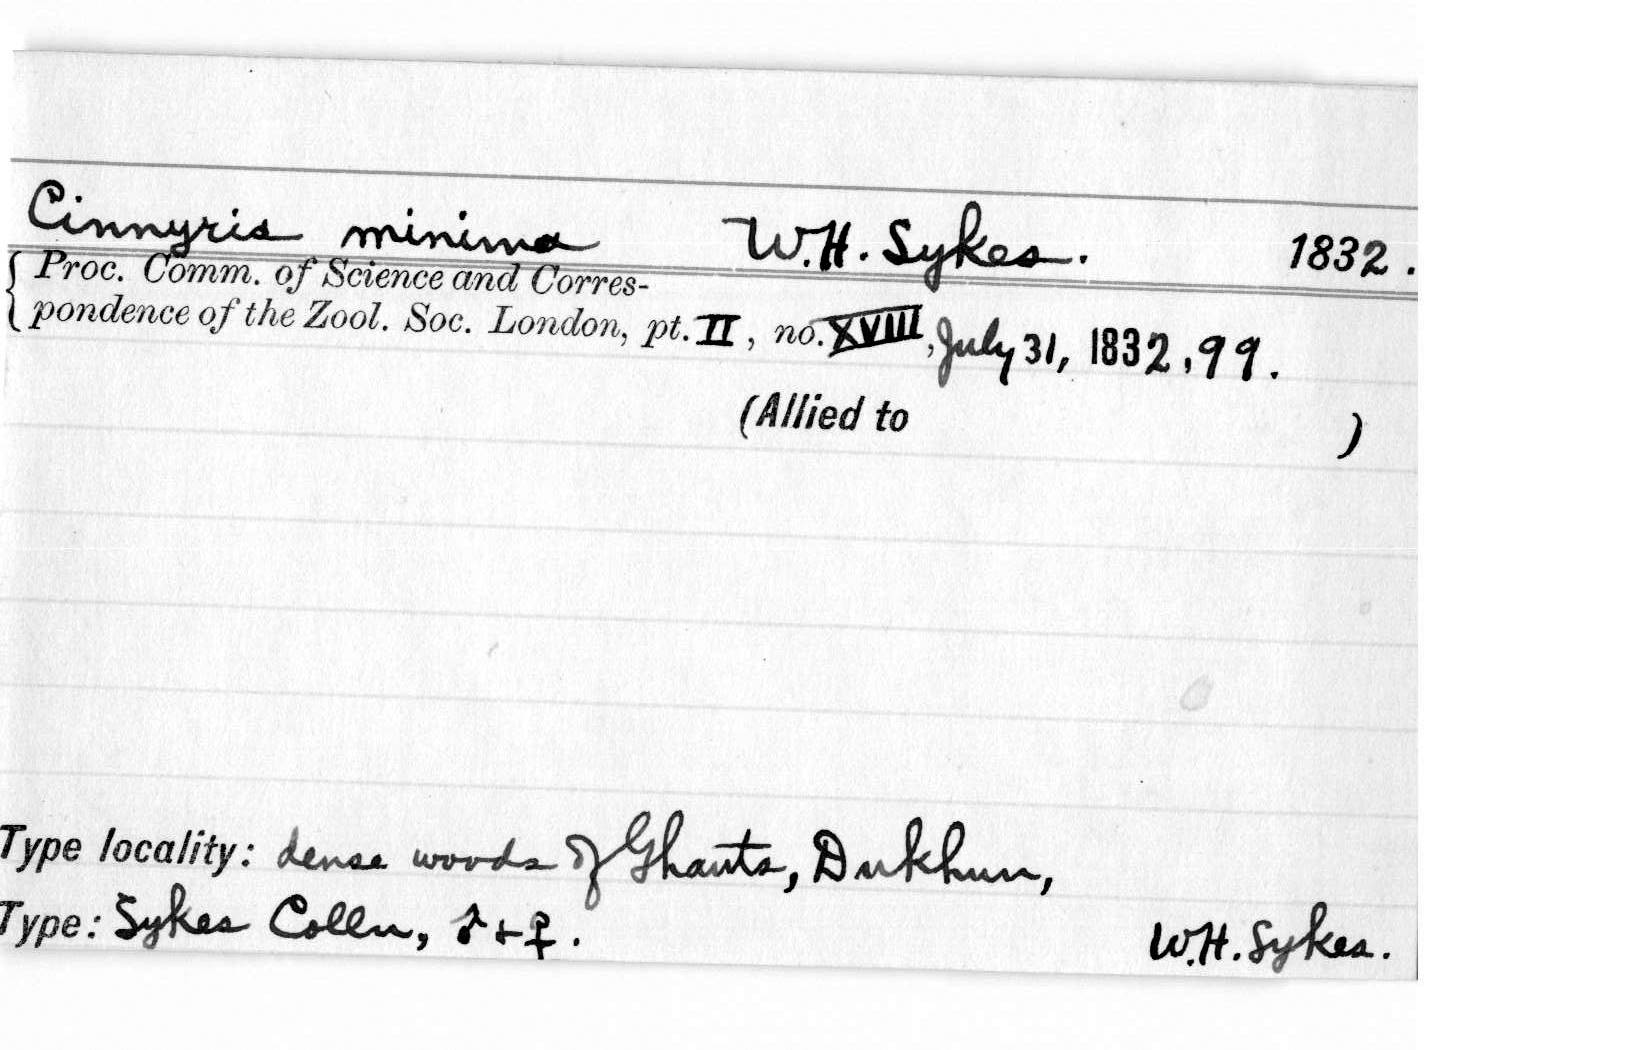 Cinnyris minima W.H. Sykes. 1832.
{ Proc. Comm. of Science and Corres-
pondence of the Zool. Soc. London, pt. II, no. XVIII, July 31, 1832, 99.
(Allied to )
Type locality: dense woods of Ghauts, Dukhun,
Type: Sykes Colln, ♂ + ♀. W.H. Sykes.